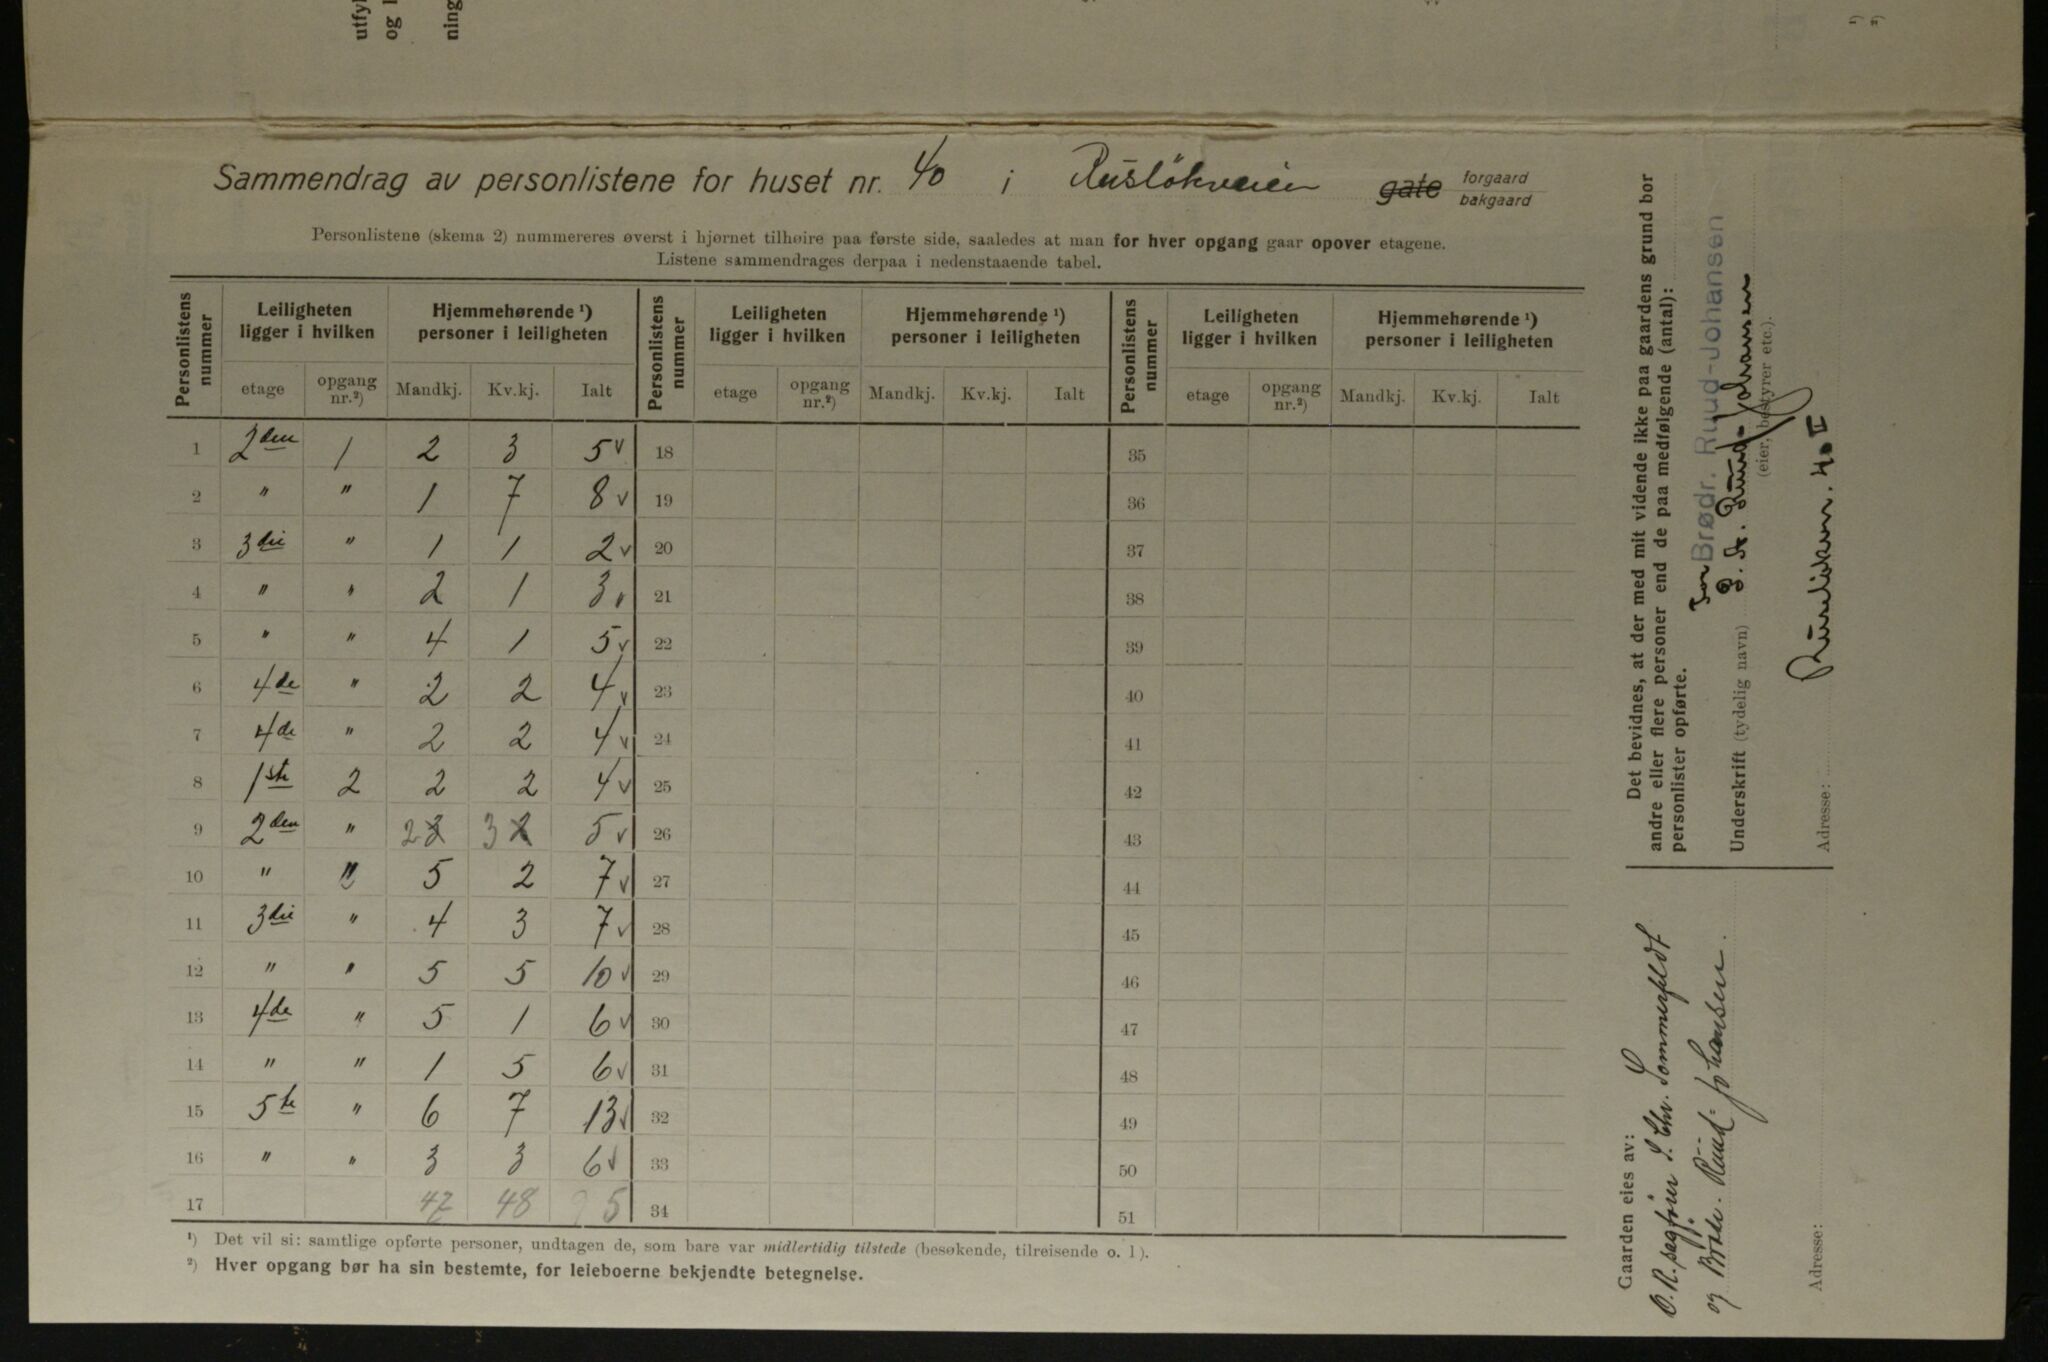 utfyl
og l
ning
Sammendrag av personlistene for huset nr. 40 i Rusløkveien gate forgaard
bakgaard
Personlistene (skema 2) nummereres øverst i hjørnet tilhøire paa første side, saaledes at man for hver opgang gaar opover etagene.
Listene sammendrages derpaa i nedenstaaende tabel.
Personlistens nummer | Leiligheten ligger i hvilken | Hjemmehørende ¹) personer i leiligheten | Personlistens nummer | Leiligheten ligger i hvilken | Hjemmehørende ¹) personer i leiligheten | Personlistens nummer | Leiligheten ligger i hvilken | Hjemmehørende ¹) personer i leiligheten
etage | opgang nr.²) | Mandkj. | Kv.kj. | Ialt | etage | opgang nr.²) | Mandkj. | Kv.kj. | Ialt | etage | opgang nr.²) | Mandkj. | Kv.kj. | Ialt
1 2den 1 2 3 5 v 18 35
2 " " 1 7 8 v 19 36
3 3die " 1 1 2 v 20 37
4 " " 2 1 3 v 21 38
5 " " 4 1 5 v 22 39
6 4de " 2 2 4 v 23 40
7 4de " 2 2 4 v 24 41
8 1ste 2 2 2 4 v 25 42
9 2den " 2 3 3 2 5 v 26 43
10 " " 5 2 7 v 27 44
11 3die " 4 3 7 v 28 45
12 " " 5 5 10 v 29 46
13 4de " 5 1 6 v 30 47
14 " " 1 5 6 v 31 48
15 5te " 6 7 13 v 32 49
16 " " 3 3 6 v 33 50
17 47 48 95 34 51
¹) Det vil si: samtlige opførte personer, undtagen de, som bare var midlertidig tilstede (besøkende, tilreisende o. l.).
²) Hver opgang bør ha sin bestemte, for leieboerne bekjendte betegnelse.
Det bevidnes, at der med mit vidende ikke paa gaardens grund bor
andre eller flere personer end de paa medfølgende (antal):
personlister opførte.
For Brødr. Ruud-Johansen
Underskrift (tydelig navn) Ruud-Johansen
(eier, bestyrer etc.).
Adresse: Ruseløkvn. 40 II
Gaarden eies av:
O.R. sagfører S. Chr. Sommerfeldt
og Brødr. Ruud-Johansen.
Adresse: